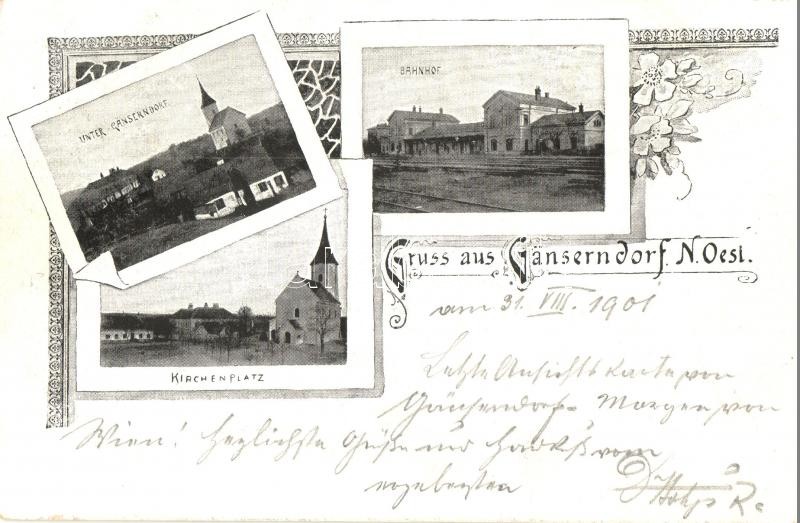 UNTER GÄNSERNDORF.
BAHNHOF
Gruss aus Gänserndorf N.Oest.
KIRCHENPLATZ
am 31. VIII. 1901
Letzte Ansichtskarte von
Gänserndorf. Morgen von
Wien! Herzlichste Grüße und vom
ergebensten